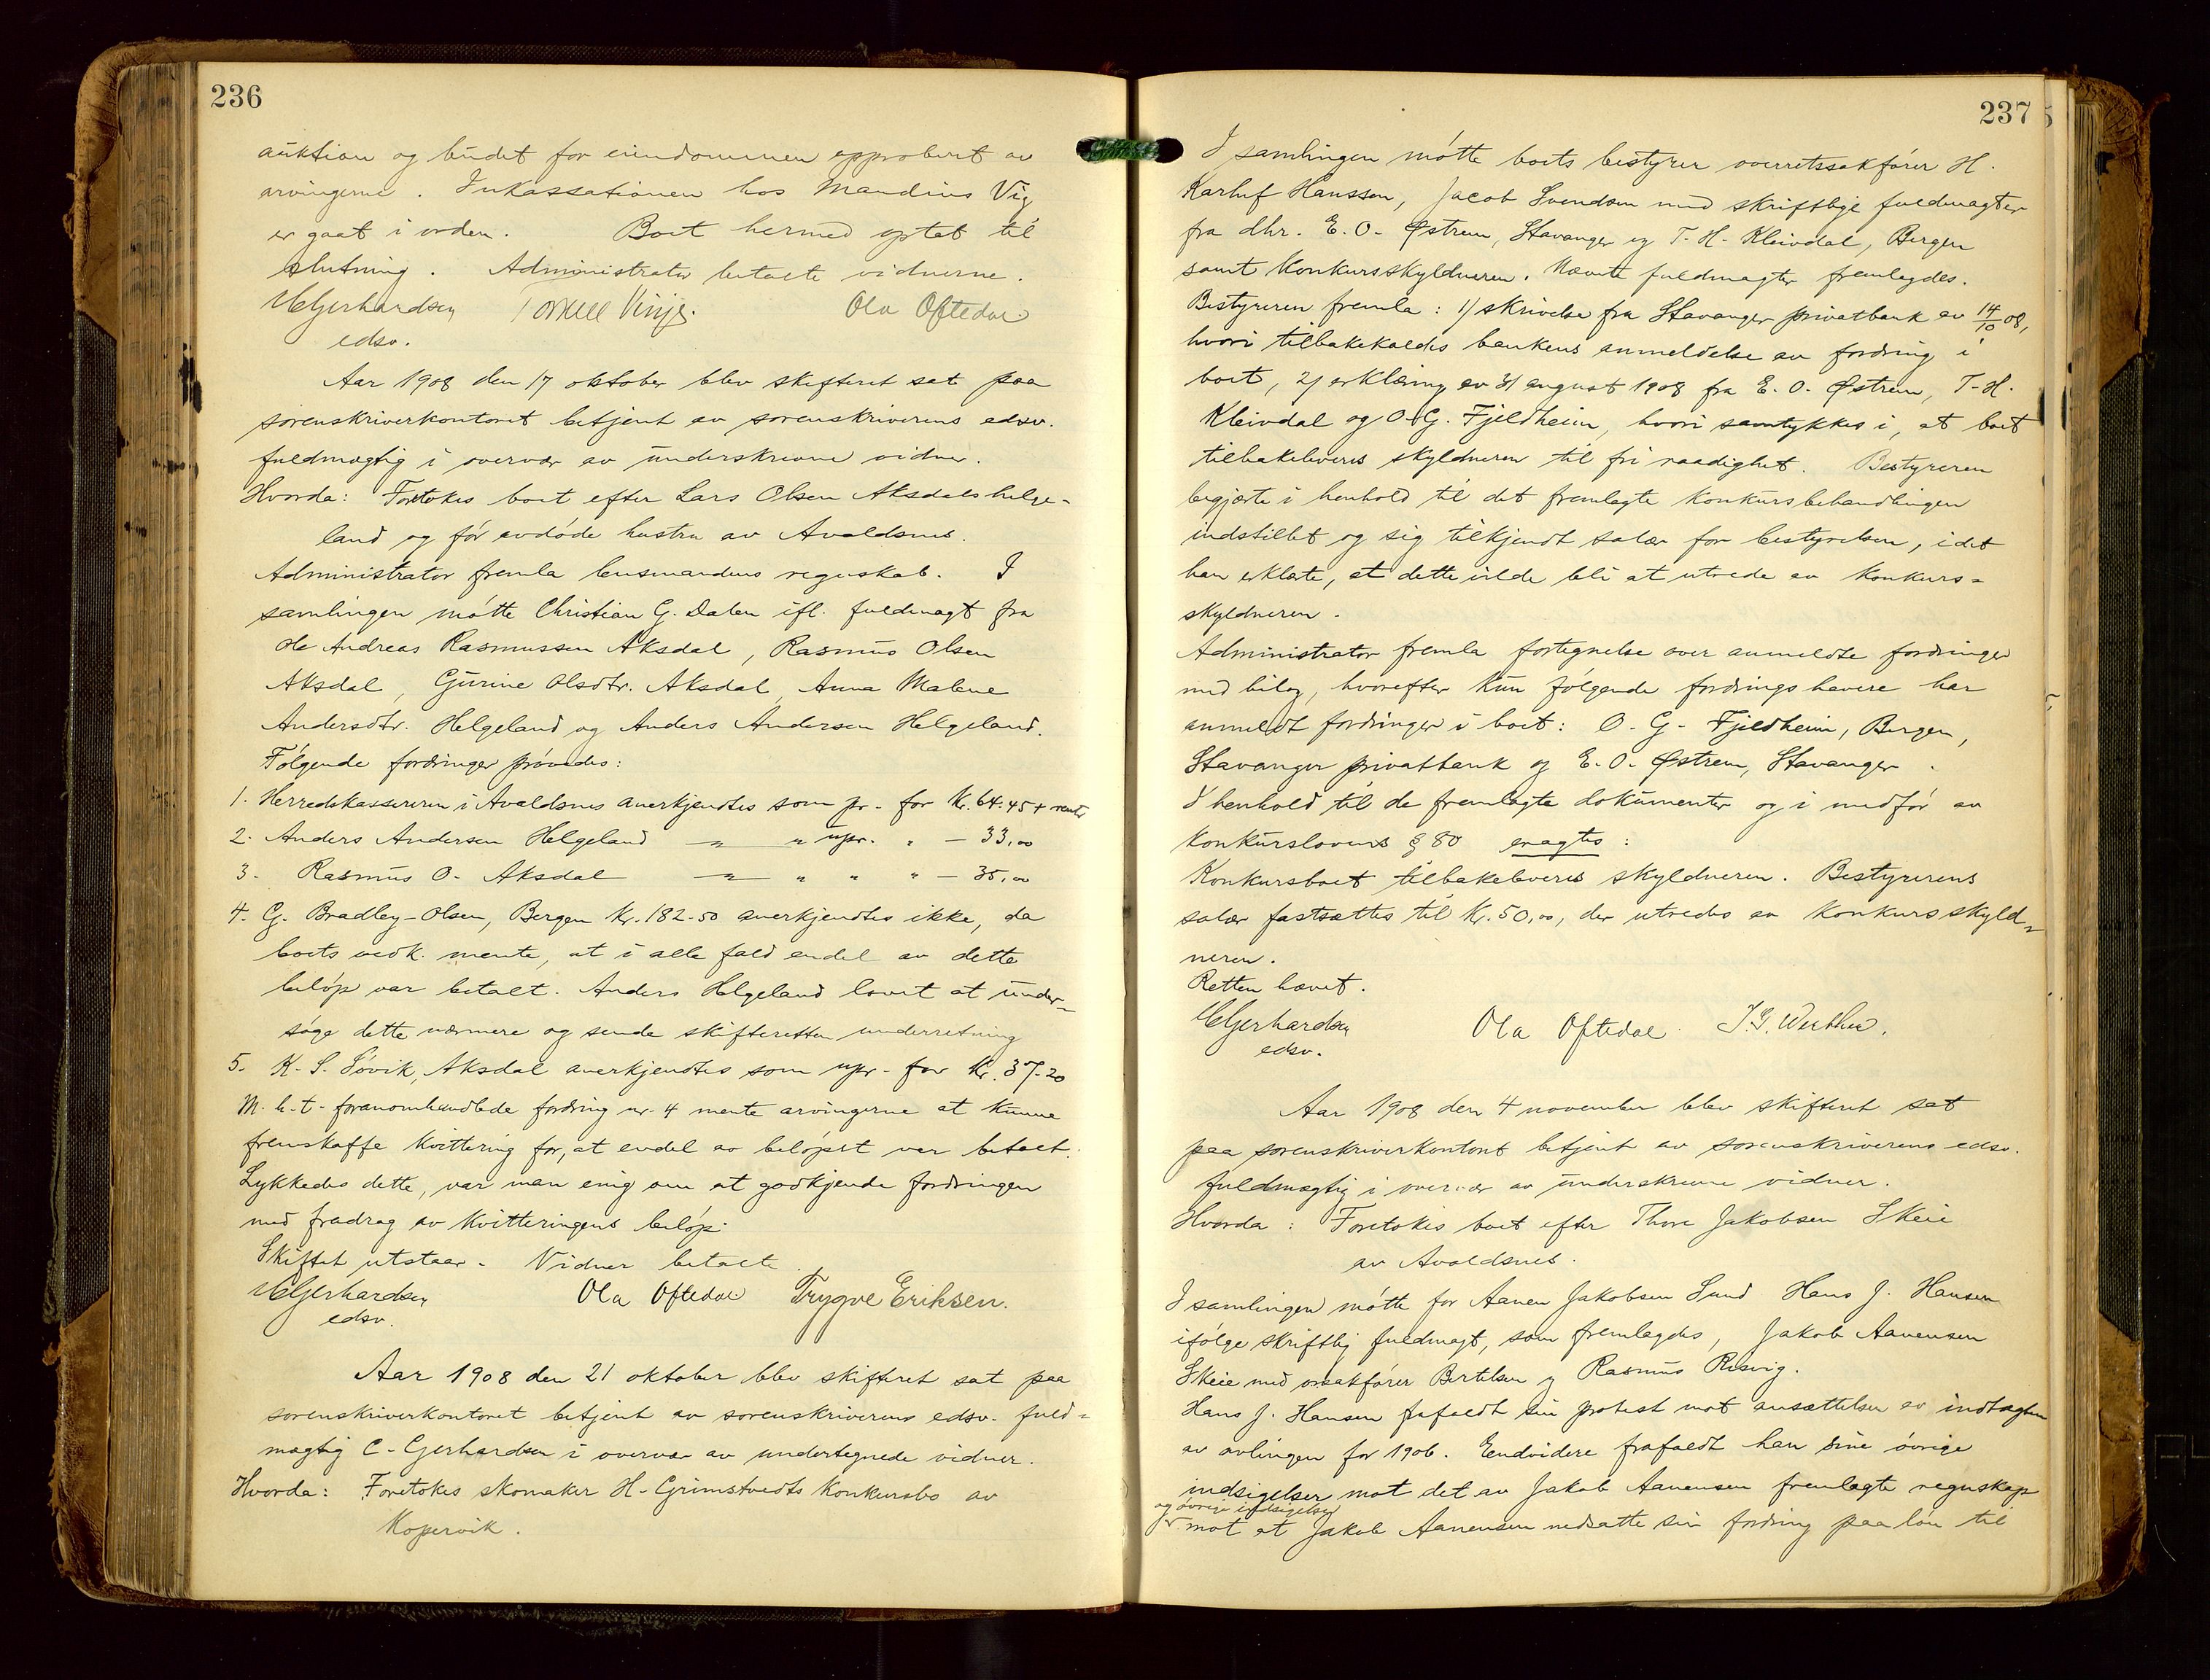 236
auktion og budet for eiendommen approbert av
arvingerne. Inkassationen hos Mandius Vig
er gaat i orden. Boet hermed optat til
slutning. Administrator betalte vidnerne.
CGerhardsen Torkell Vinje. Ola Oftedal
edsv.
Aar 1908 den 17 oktober blev skifteret sat paa
sorenskriverkontoret betjent av sorenskriverens edsv.
fuldmægtig i overvær av underskrevne vidner.
Hvorda: Foretokes boet efter Lars Olsen Aksdalshelge-
land og før avdøde hustru av Avaldsnes.
Administrator fremla lensmandens regnskab. I
samlingen møtte Christian G. Dalen ifl. fuldmagt fra
Ole Andreas Rasmussen Aksdal, Rasmus Olsen
Aksdal, Gurine Olsdtr. Aksdal, Anna Malene
Andersdtr. Helgeland og Anders Andersen Helgeland.
Følgende fordringer prøvedes:
1. Herredskassereren i Avaldsnes anerkjendtes som pr. for Kr. 64.45 + renter
2. Anders Andersen Helgeland — " — " upr. " — 33,00
3. Rasmus O. Aksdal — " — " " " — 35,00
4. G. Bradley-Olsen, Bergen Kr. 182-50 anerkjendtes ikke, da
boets vedk. mente, at i alle fald endel av dette
beløp var betalt. Anders Helgeland lovet at under-
søge dette nærmere og sende skifteretten underretning
5. K. S. Søvik, Aksdal anerkjendtes som upr. for Kr. 37-20
M. h. t. foranomhandlede fordring nr. 4 mente arvingerne at kunne
fremskaffe kvittering for, at endel av beløpet var betalt.
Lykkedes dette, var man enig om at godkjende fordringen
med fradrag av kvitteringens beløp.
Skiftet utstaar. Vidner betalte.
CGerhardsen Ola Oftedal Trygve Eriksen.
edsv.
Aar 1908 den 21 oktober blev skifteret sat paa
sorenskriverkontoret betjent av sorenskriverens edsv. fuld-
mægtig C. Gerhardsen i overvær av undertegnede vidner.
Hvorda: Foretokes skomaker H. Grimstvedts konkursbo av
Kopervik.
237
I samlingen møtte boets bestyrer overretssakfører H.
Karluf Hanssen, Jacob Svendsen med skriftlige fuldmagter
fra dhr. E. O. Østrem, Stavanger og T. H. Kleivdal, Bergen
samt konkursskyldneren. Nævnte fuldmagter fremlagdes.
Bestyreren fremla: 1/ skrivelse fra Stavanger privatbank av 14/10 08,
hvori tilbakekaldes bankens anmeldelse av fordring i
boet, 2/ erklæring av 31 august 1908 fra E. O. Østrem, T. H.
Kleivdal og O. G. Fjeldheim, hvori samtykkes i, at boet
tilbakeleveres skyldneren til fri raadighet. Bestyreren
begjærte i henhold til det fremlagte konkursbehandlingen
indstillet og sig tilkjendt salær for bestyrelsen, idet
han erklærte, at dette vilde bli at utrede av konkurs-
skyldneren.
Administrator fremla fortegnelse over anmeldte fordringer
med bilag, hvorefter kun følgende fordringshavere har
anmeldt fordringer i boet: O. G. Fjeldheim, Bergen,
Stavanger privatbank og E. O. Østrem, Stavanger.
I henhold til de fremlagte dokumenter og i medfør av
konkurslovens § 80 eragtes:
Konkursboet tilbakeleveres skyldneren. Bestyrerens
salær fastsættes til Kr. 50,00, der utredes av konkursskyld-
neren.
Retten hævet.
CGerhardsen Ola Oftedal. edsv.
Aar 1908 den 4 november blev skifteret sat
paa sorenskriverkontoret betjent av sorenskriverens edsv.
fuldmægtig i overvær av underskrevne vidner.
Hvorda: Foretokes boet efter Thore Jakobsen Skeie
av Avaldsnes.
I samlingen møtte for Aanen Jakobsen Sund Hans J. Hansen
ifølge skriftlig fuldmagt, som fremlagdes, Jakob Aanensen
Skeie med o.r.sakfører Bertelsen og Rasmus Risvig.
Hans J. Hansen frafaldt sin protest mot ansættelsen av indtægten
av avlingen for 1906. Endvidere frafaldt han sine øvrige
indsigelser mot det av Jakob Aanensen fremlagte regnskap
og øvrige indsigelser
mot at Jakob Aanensen nedsatte sin fordring paa løn til